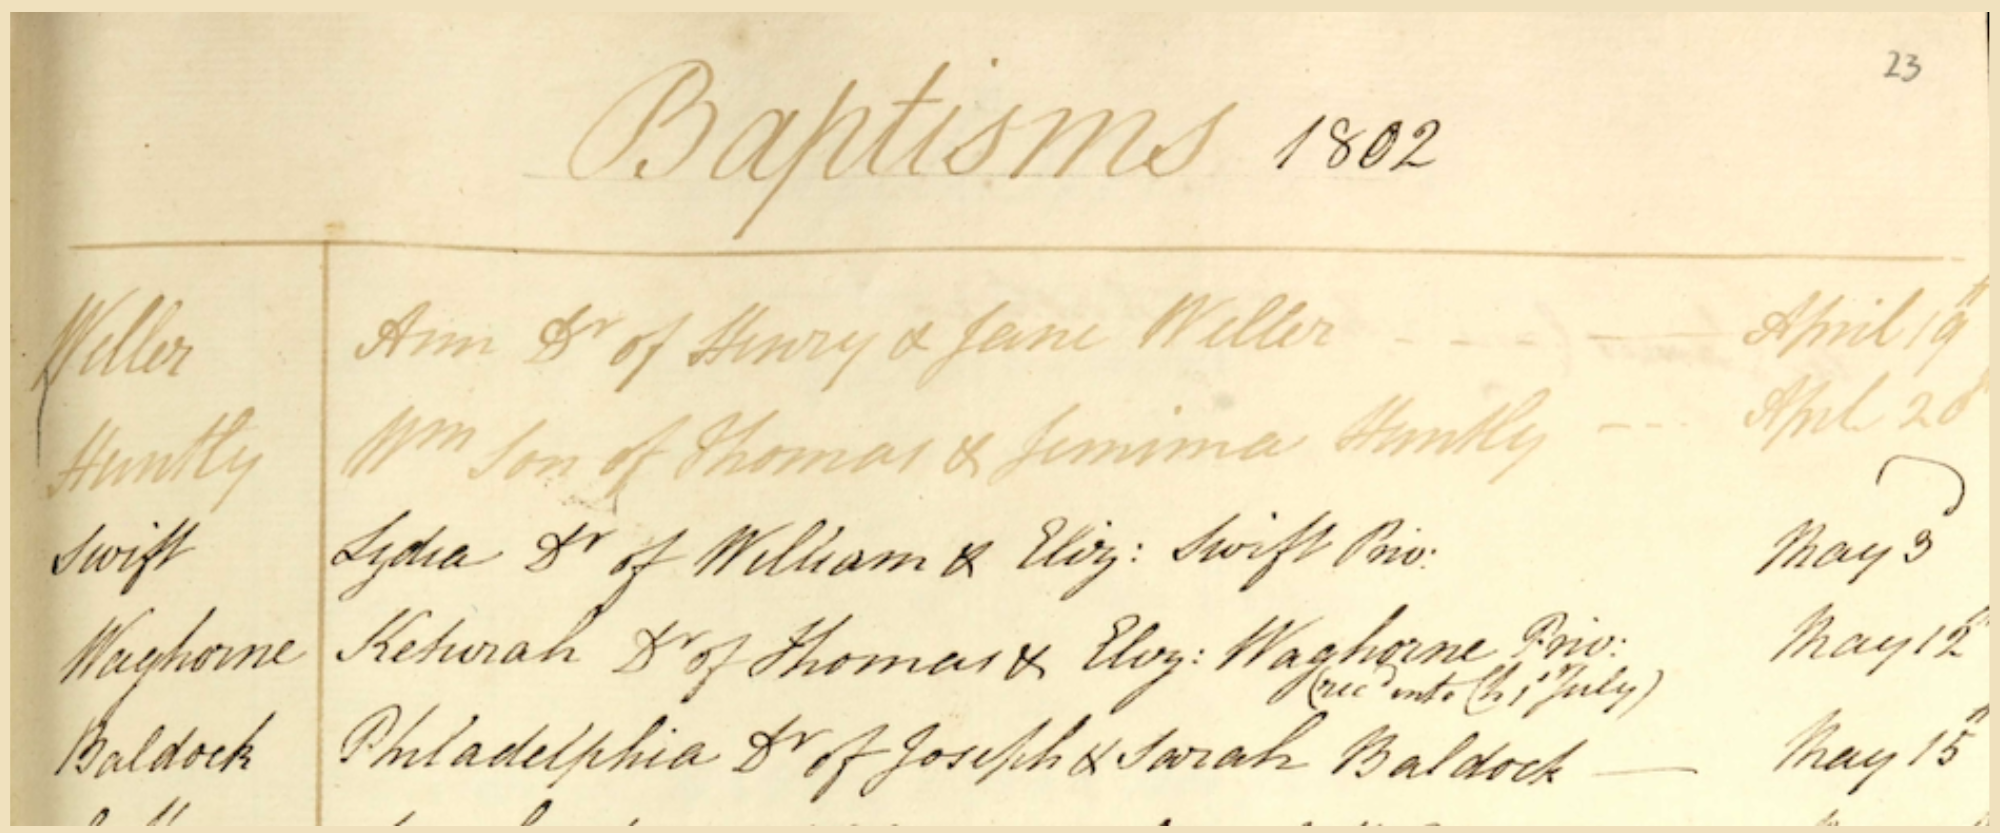 23
Baptisms 1802
Weller Ann Dr of Henry & Jane Weller - - - April 19th
Huntly Wm Son of Thomas & Jemima Huntly - - - April
Swift Lydia Dr of William & Eliz: Swift Priv: May 3
Waghorne Keturah Dr of Thomas & Eliz: Waghorne Priv: May 12th
(recd into Ch 1st July)
Baldock Philadelphia Dr of Joseph & Sarah Baldock — May 15th